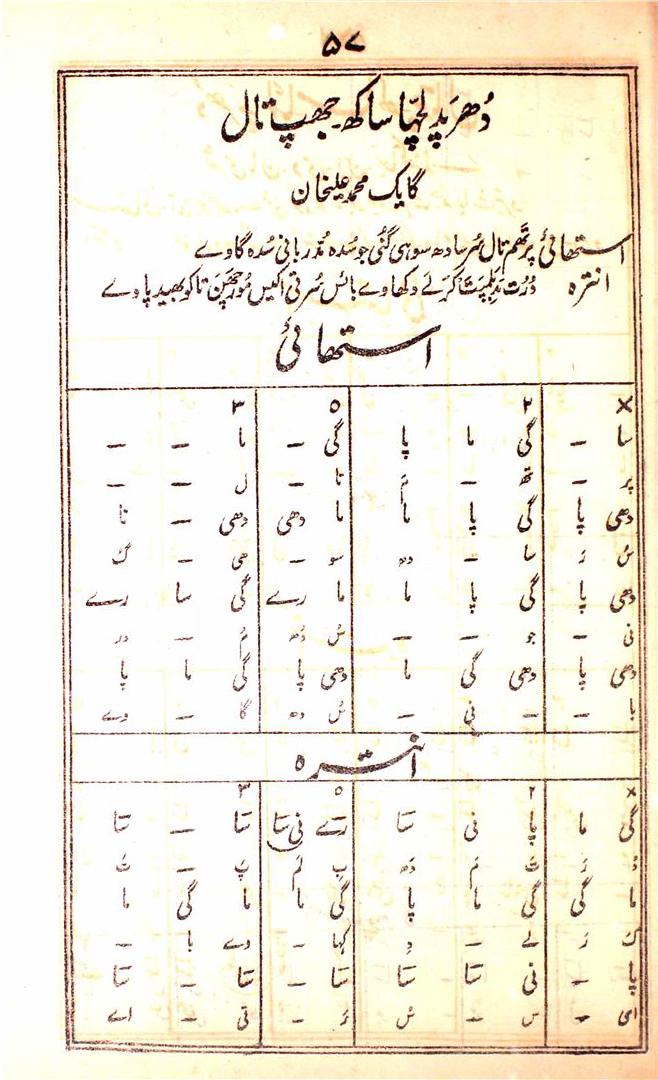 ۵۷
دُھرپد لچھا ساکھ۔ جھپ تال
گایک محمد علیخان
استھائی پرتھم تال سُر سادھ سوہی گُنی جو سُدہ مُدر بانی سُدہ گاوے
انترہ دُرت بِلمپت کر لے دکھاوے بائس سُرتی اکیس مُورچھن تاکو بھید پاوے
استھائی
× ۲ ۵ ۳
سا – گی ما پا گی – ما – –
پر – تھ – مَ تا – ل – –
دھی پا گی پا ما ما دھی دھی – نا
سُ رَ سا – دھ سو – ہی – گُ
دھی پا گی پا ما ما رے گی سا رے
نی – جو – – سُ دھ مُ – در
دھی پا دھی گی ما دھی پا گی ما پا
با – – نی – سُ دھ گا – وے
انترہ
× ۲ ۵ ۳
گی ما پا نی سَا رے نی سَا سَا – سَا
دُ رَ ت مَ دَھ بِ لَم پَ – تَ
ما گی گی ما پا گی ما ما گی ما
کَ رَ لے – دِ کھا – وے با –
پا – نی سَا سَا سَا – سَا – سَا
ای – س – سُ رَ – تی – اے